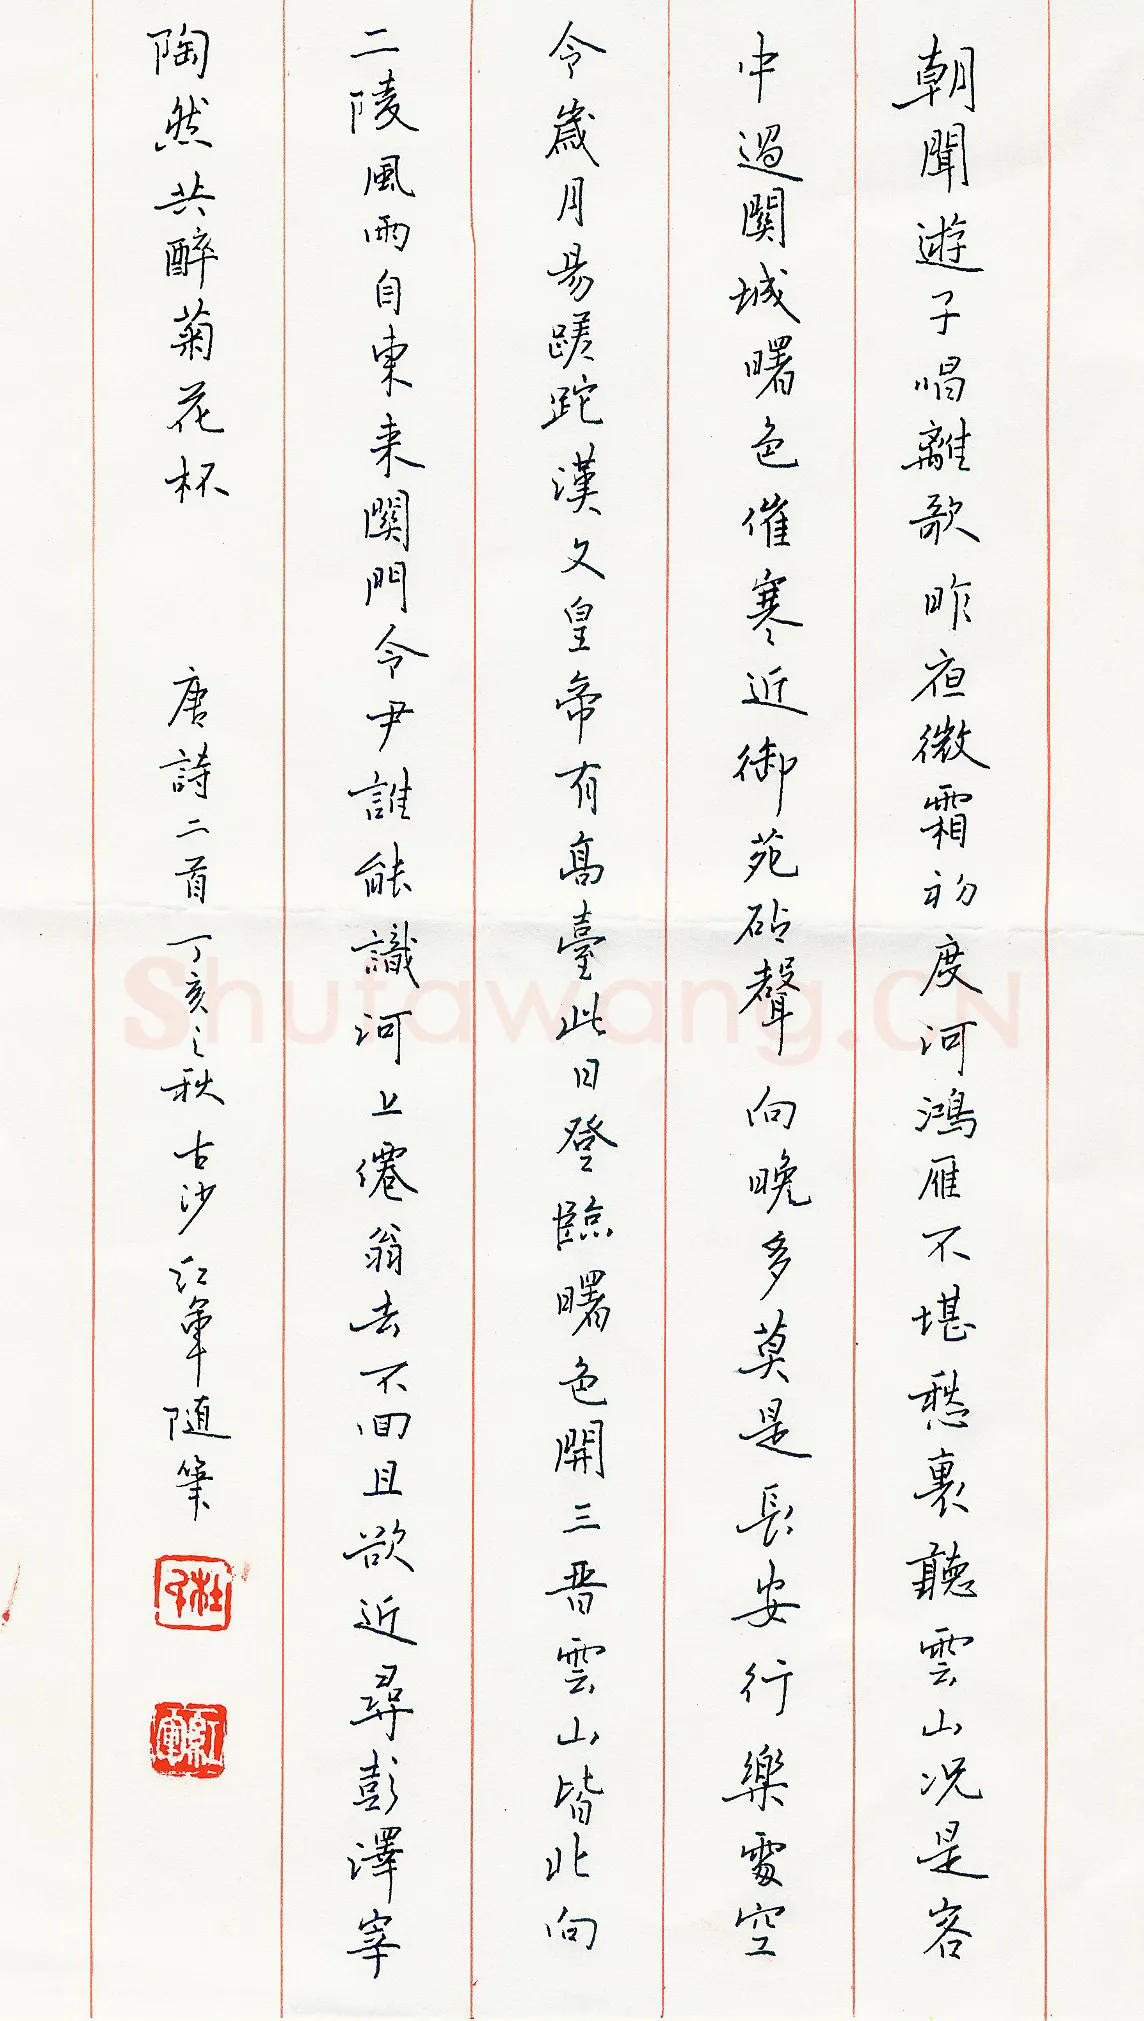 朝聞遊子唱離歌昨夜微霜初度河鴻雁不堪愁裏聽雲山况是客
中過關城曙色催寒近御苑砧聲向晚多莫是長安行樂處空
令歲月易蹉跎漢文皇帝有高臺此日登臨曙色開三晋雲山皆北向
二陵風雨自東来關門令尹誰能識河上僊翁去不回且欲近尋彭澤宰
陶然共醉菊花杯
唐詩二首丁亥之秋古沙紅軍随筆
杜
紅軍
Shufawang.CN